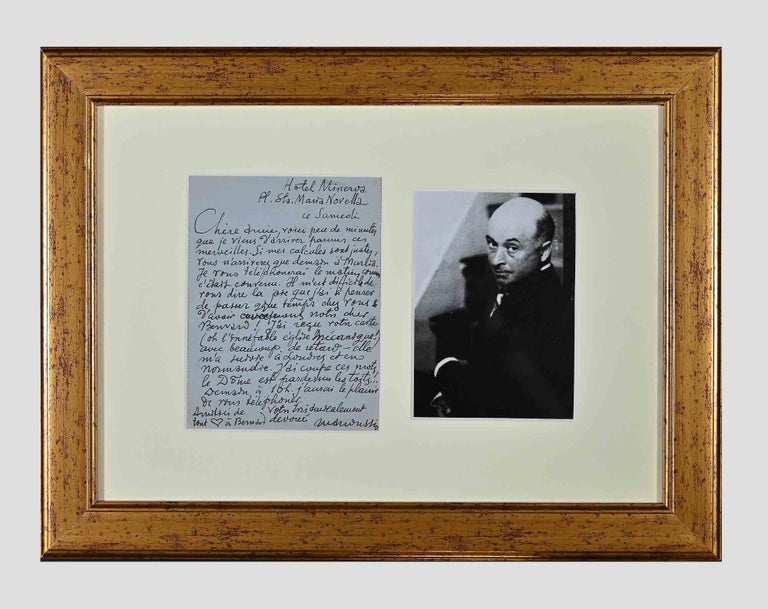 Hotel Minerva
Pl. Sta. Maria Novella
ce Samedi
Chère amie, voici peu de minutes
que je viens d'arriver parmis ces
merveilles. Si mes calcules sont justes,
vous n'arriverez que demain à Marlia.
Je vous téléphonerai le matin, comme
c'était convenu. Il m'est difficile de
vous dire la joie que j'ai à penser
de passer qque temps chez vous &
d'avoir avec nous notre cher
Bernard! J'ai reçu votre carte
(oh l'innéfable église mécanique!)
avec beaucoup de retard - Elle
m'a suivie à Londres et en
Normandie. J'ai coupé ces mots,
le Dôme est pardessus les toits!..
Demain à 10h j'aurai le plaisir
de vous téléphoner.
Amitiés de votre musicalement
tout ♡ à Bernard dévoué